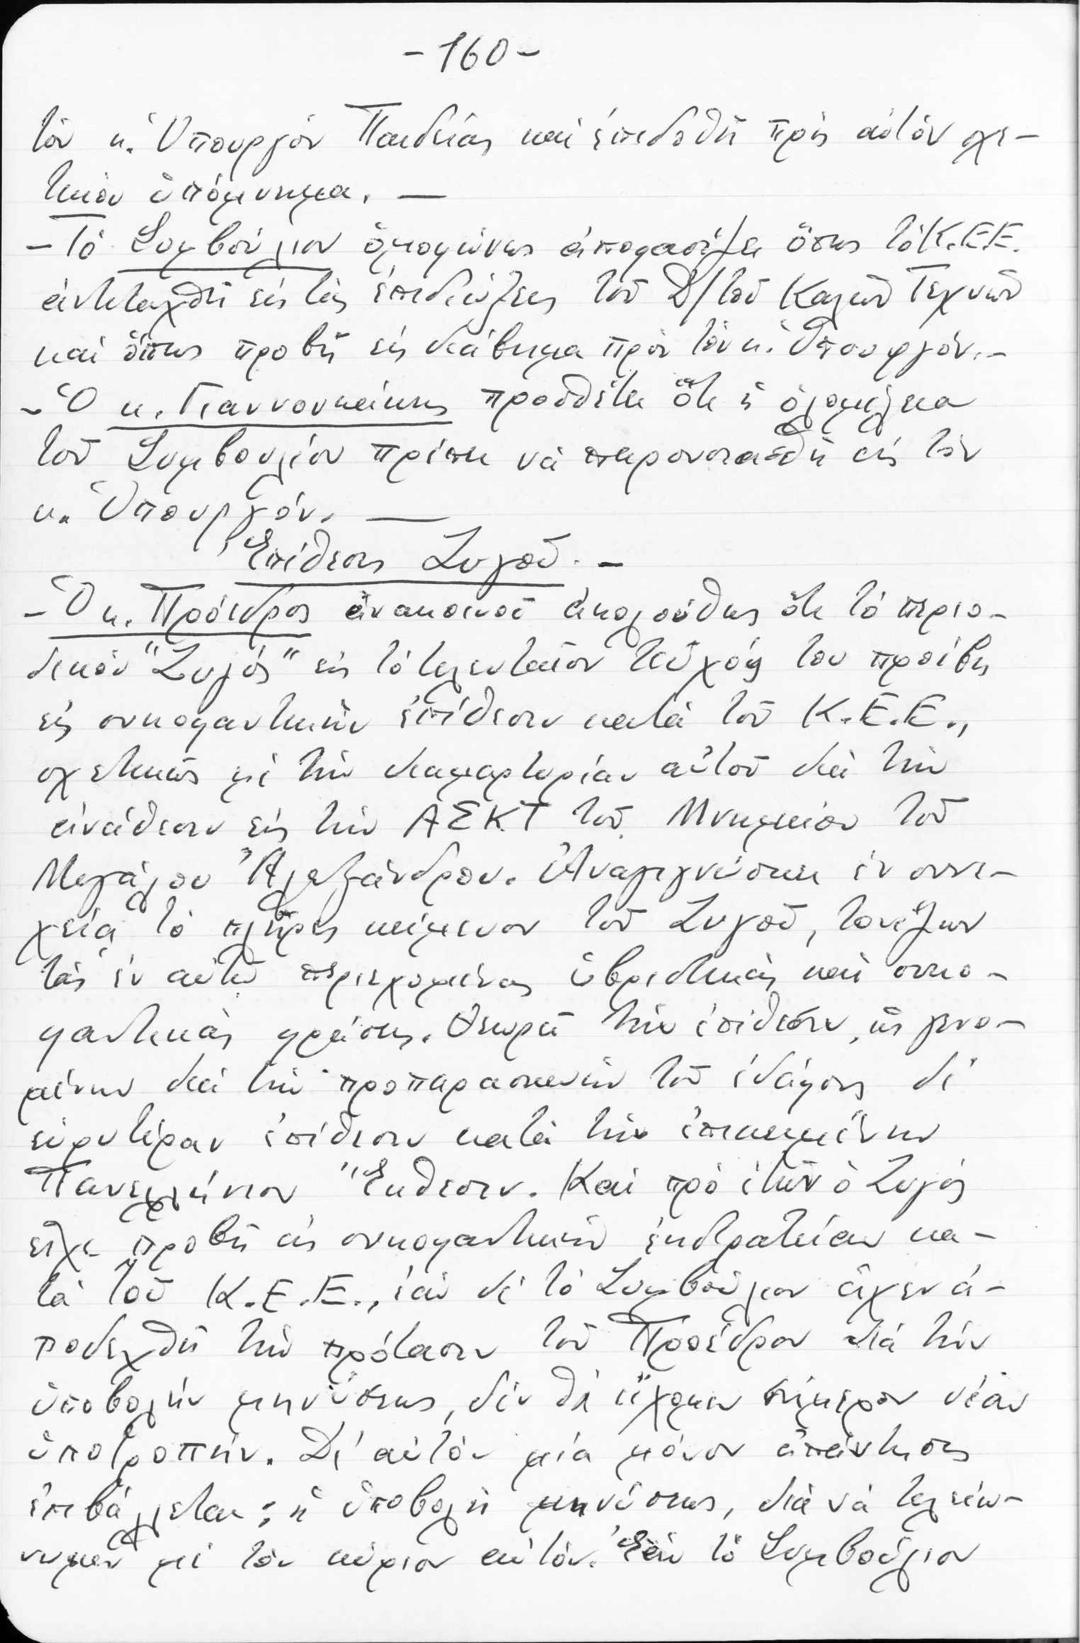 -160-
τὸν κ. Ὑπουργὸν Παιδείας καὶ ἐπιδοθῇ πρὸς αὐτὸν σχε-
τικὸν ὑπόμνημα. —
- Τὸ Συμβούλιον ὁμοφώνως ἀποφασίζει ὅπως τὸ Κ.Ε.Ε.
ἀντιταχθῇ εἰς τὰς ἐπιδιώξεις τοῦ Δ/τοῦ Καλῶν Τεχνῶν
καὶ ὅπως προβῇ εἰς διάβημα πρὸς τὸν κ. Ὑπουργόν. -
- Ὁ κ. Γιαννουκάκης προσθέτει ὅτι ἡ ὁλομέλεια
τοῦ Συμβουλίου πρέπει νὰ παρουσιασθῇ εἰς τὸν
κ. Ὑπουργόν. —
Ἐπίθεσις Ζυγοῦ. -
- Ὁ κ. Πρόεδρος ἀνακοινοῖ ἀκολούθως ὅτι τὸ περιο-
δικὸν "Ζυγός" εἰς τὸ τελευταῖον τεῦχός του προέβη
εἰς συκοφαντικὴν ἐπίθεσιν κατὰ τοῦ Κ.Ε.Ε.,
σχετικῶς μὲ τὴν διαμαρτυρίαν αὐτοῦ διὰ τὴν
ἀνάθεσιν εἰς τὴν ΑΣΚΤ τοῦ Μνημείου τοῦ
Μεγάλου Ἀλεξάνδρου. Ἀναγιγνώσκει ἐν συνε-
χείᾳ τὸ πλῆρες κείμενον τοῦ Ζυγοῦ, τονίζων
τὰς ἐν αὐτῷ περιεχομένας ὑβριστικὰς καὶ συκο-
φαντικὰς φράσεις. Θεωρεῖ τὴν ἐπίθεσιν, ὡς γενο-
μένην διὰ τὴν προπαρασκευὴν τοῦ ἐδάφους δι'
εὐρυτέραν ἐπίθεσιν κατὰ τὴν ἐπικειμένην
Πανελλήνιον Ἔκθεσιν. Καὶ πρὸ ἐτῶν ὁ Ζυγός
εἶχε προβῇ εἰς συκοφαντικὴν ἐκστρατείαν κα-
τὰ τοῦ Κ.Ε.Ε., ἐὰν δὲ τὸ Συμβούλιον εἶχεν ἀ-
ποδεχθῆ τὴν πρότασιν τοῦ Προέδρου διὰ τὴν
ὑποβολὴν μηνύσεως, δὲν θὰ εἴχομεν σήμερον νέαν
ὑποτροπήν. Δι' αὐτὸν μία μόνον ἀπάντησις
ἐπιβάλλεται: ἡ ὑποβολὴ μηνύσεως, διὰ νὰ τελειώ-
νωμεν μὲ τὸν κύριον αὐτόν. Ἐὰν τὸ Συμβούλιον